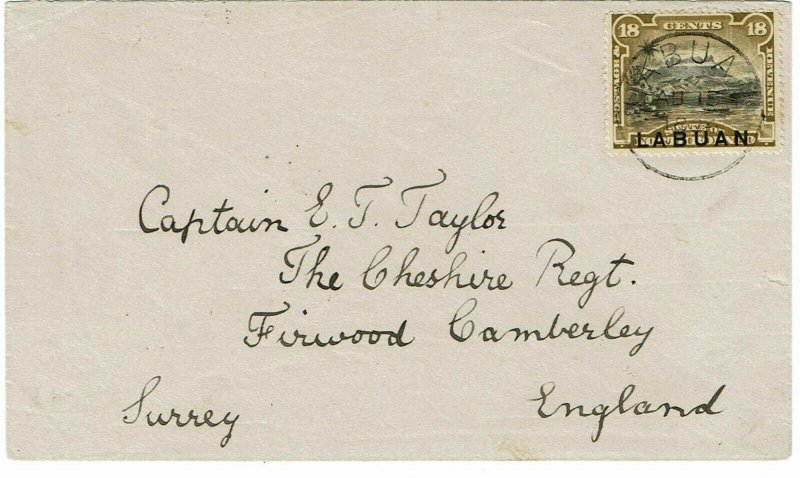 18 CENTS 18
POSTAGE &
REVENUE
ABUA
AU 15
LABUAN
Captain E. T. Taylor
The Cheshire Regt.
Firwood Camberley
Surrey England